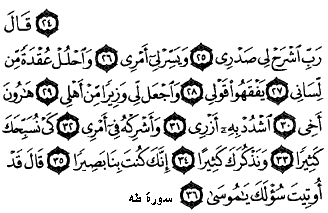 ﴿٢٤﴾ قَالَ
رَبِّ ٱشْرَحْ لِى صَدْرِى ﴿٢٥﴾ وَيَسِّرْ لِىٓ أَمْرِى ﴿٢٦﴾ وَٱحْلُلْ عُقْدَةً مِّن
لِّسَانِى ﴿٢٧﴾ يَفْقَهُوا۟ قَوْلِى ﴿٢٨﴾ وَٱجْعَل لِّى وَزِيرًا مِّنْ أَهْلِى ﴿٢٩﴾ هَـٰرُونَ
أَخِى ﴿٣٠﴾ ٱشْدُدْ بِهِۦٓ أَزْرِى ﴿٣١﴾ وَأَشْرِكْهُ فِىٓ أَمْرِى ﴿٣٢﴾ كَىْ نُسَبِّحَكَ
كَثِيرًا ﴿٣٣﴾ وَنَذْكُرَكَ كَثِيرًا ﴿٣٤﴾ إِنَّكَ كُنتَ بِنَا بَصِيرًا ﴿٣٥﴾ قَالَ قَدْ
أُوتِيتَ سُؤْلَكَ يَـٰمُوسَىٰ ﴿٣٦﴾ سورة طه